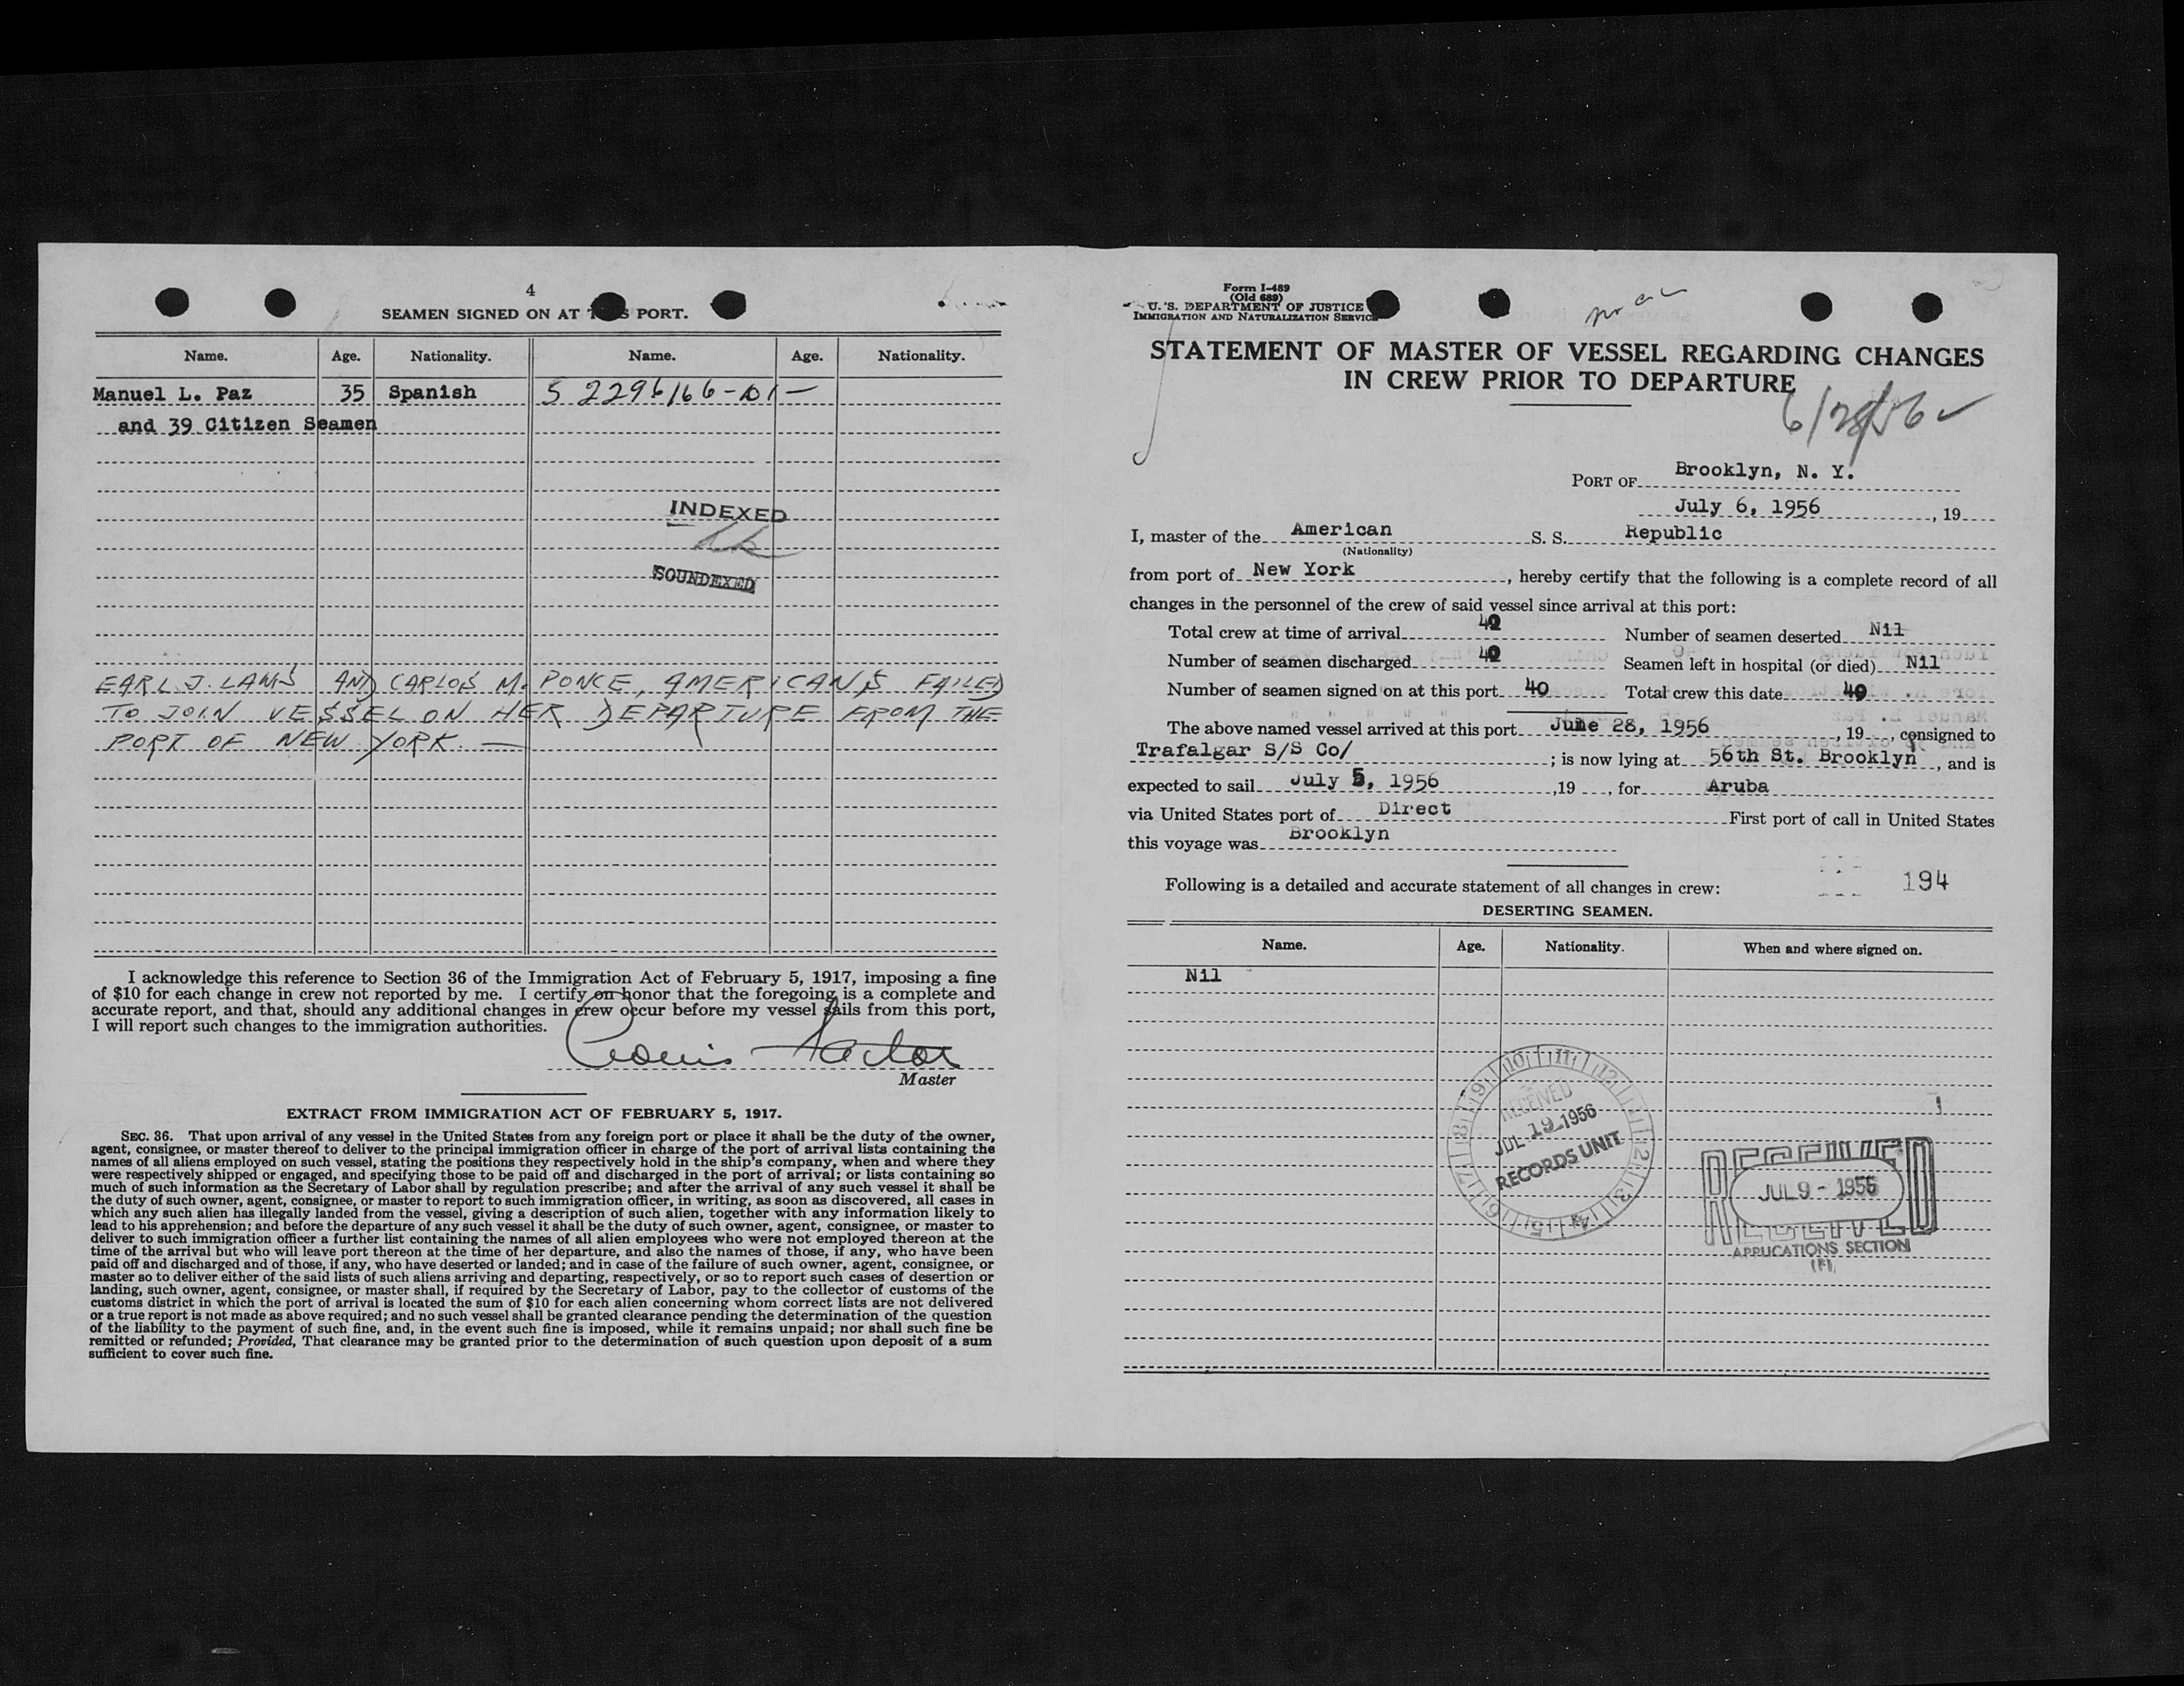 4
SEAMEN SIGNED ON AT S PORT.
Name. Age. Nationality. Name. Age. Nationality.
Manuel L. Paz 35 Spanish 5 2296166-01-
and 39 Citizen Seamen
INDEXED
SOUNDEXED
EARL J. LAMS AND CARLOS M. PONCE, AMERICANS FAILED
TO JOIN VESSEL ON HER DEPARTURE FROM THE
PORT OF NEW YORK. —
I acknowledge this reference to Section 36 of the Immigration Act of February 5, 1917, imposing a fine
of $10 for each change in crew not reported by me. I certify on honor that the foregoing is a complete and
accurate report, and that, should any additional changes in crew occur before my vessel sails from this port,
I will report such changes to the immigration authorities.
Master
EXTRACT FROM IMMIGRATION ACT OF FEBRUARY 5, 1917.
SEC. 36. That upon arrival of any vessel in the United States from any foreign port or place it shall be the duty of the owner,
agent, consignee, or master thereof to deliver to the principal immigration officer in charge of the port of arrival lists containing the
names of all aliens employed on such vessel, stating the positions they respectively hold in the ship's company, when and where they
were respectively shipped or engaged, and specifying those to be paid off and discharged in the port of arrival; or lists containing so
much of such information as the Secretary of Labor shall by regulation prescribe; and after the arrival of any such vessel it shall be
the duty of such owner, agent, consignee, or master to report to such immigration officer, in writing, as soon as discovered, all cases in
which any such alien has illegally landed from the vessel, giving a description of such alien, together with any information likely to
lead to his apprehension; and before the departure of any such vessel it shall be the duty of such owner, agent, consignee, or master to
deliver to such immigration officer a further list containing the names of all alien employees who were not employed thereon at the
time of the arrival but who will leave port thereon at the time of her departure, and also the names of those, if any, who have been
paid off and discharged and of those, if any, who have deserted or landed; and in case of the failure of such owner, agent, consignee, or
master so to deliver either of the said lists of such aliens arriving and departing, respectively, or so to report such cases of desertion or
landing, such owner, agent, consignee, or master shall, if required by the Secretary of Labor, pay to the collector of customs of the
customs district in which the port of arrival is located the sum of $10 for each alien concerning whom correct lists are not delivered
or a true report is not made as above required; and no such vessel shall be granted clearance pending the determination of the question
of the liability to the payment of such fine, and, in the event such fine is imposed, while it remains unpaid; nor shall such fine be
remitted or refunded; Provided, That clearance may be granted prior to the determination of such question upon deposit of a sum
sufficient to cover such fine.
Form I-489
(Old 689)
U. S. DEPARTMENT OF JUSTICE
IMMIGRATION AND NATURALIZATION SERVICE
STATEMENT OF MASTER OF VESSEL REGARDING CHANGES
IN CREW PRIOR TO DEPARTURE
6/28/56
PORT OF Brooklyn, N. Y.
July 6, 1956, 19
I, master of the American S. S. Republic
(Nationality)
from port of New York, hereby certify that the following is a complete record of all
changes in the personnel of the crew of said vessel since arrival at this port:
Total crew at time of arrival Number of seamen deserted Nil
Number of seamen discharged Seamen left in hospital (or died) Nil
Number of seamen signed on at this port 40 Total crew this date 40
The above named vessel arrived at this port June 28, 1956, 19, consigned to
Trafalgar S/S Co/; is now lying at 56th St. Brooklyn, and is
expected to sail July 5, 1956, 19, for Aruba
via United States port of Direct First port of call in United States
this voyage was Brooklyn
Following is a detailed and accurate statement of all changes in crew: 194
DESERTING SEAMEN.
Name. Age. Nationality. When and where signed on.
Nil
RECEIVED
JUL 19 1956
RECORDS UNIT
RECEIVED
JUL 9 - 1956
RECEIVED
APPLICATIONS SECTION